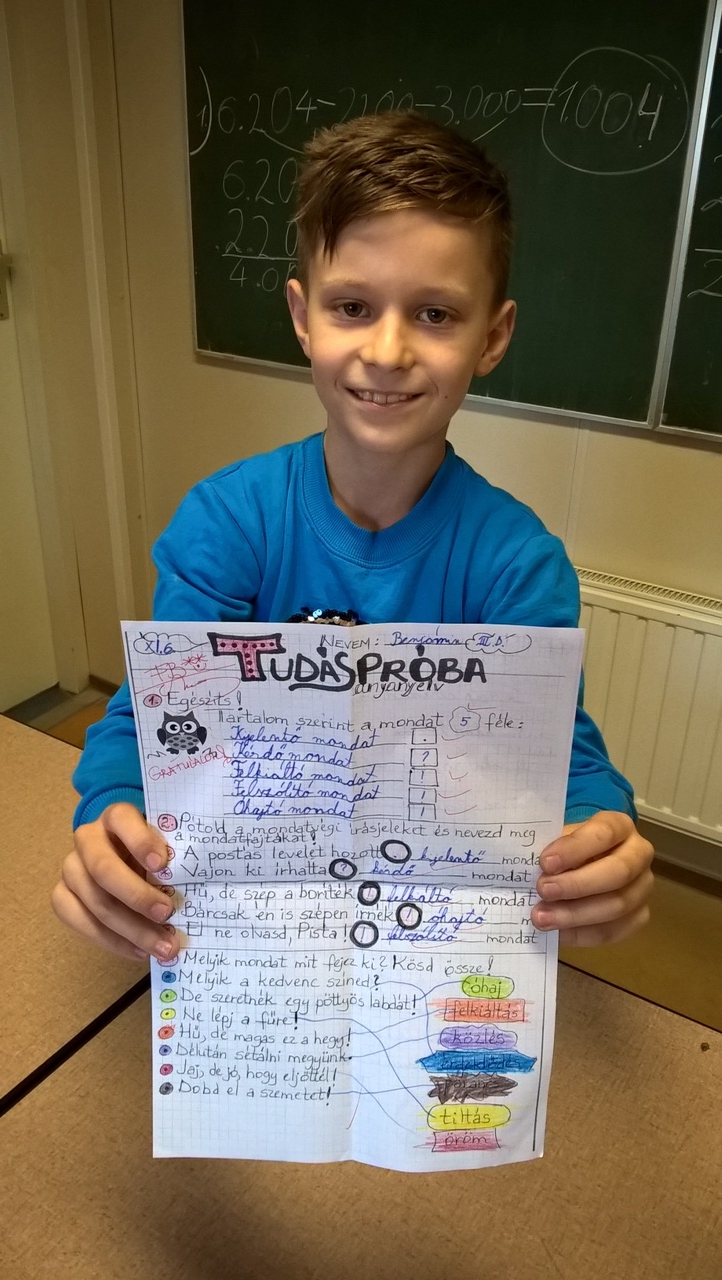 1) 6.204-2200-3.000=1.004
6.20
2.20
4.0
XI.6
NEVEM: Benjámin III.D.
FB**
TUDÁSPRÓBA
anyanyelv
1. Egészíts!
Tartalom szerint a mondat 5 féle:
Kijelentő mondat .
Kérdő mondat ?
Felkiáltó mondat !
GRATULÁLOK!
Felszólító mondat !
Óhajtó mondat !
2. Pótold a mondatvégi írásjeleket és nevezd meg
a mondatfajtákat!
A postás levelet hozott . kijelentő monda
Vajon ki írhatta ? kérdő mondat
Hű, de szép a boríték ! felkiáltó mondat
Bárcsak én is szépen írnék ! óhajtó m
El ne olvasd, Pista! ! felszólító mondat
Melyik mondat mit fejez ki? Kösd össze!
Melyik a kedvenc színed?
óhaj
De szeretnék egy pöttyös labdát!
felkiáltás
Ne lépj a fűre!
Hű, de magas ez a hegy!
közlés
Délután sétálni megyünk.
Jaj, de jó, hogy eljöttél!
Dobd el a szemetet!
tiltás
öröm